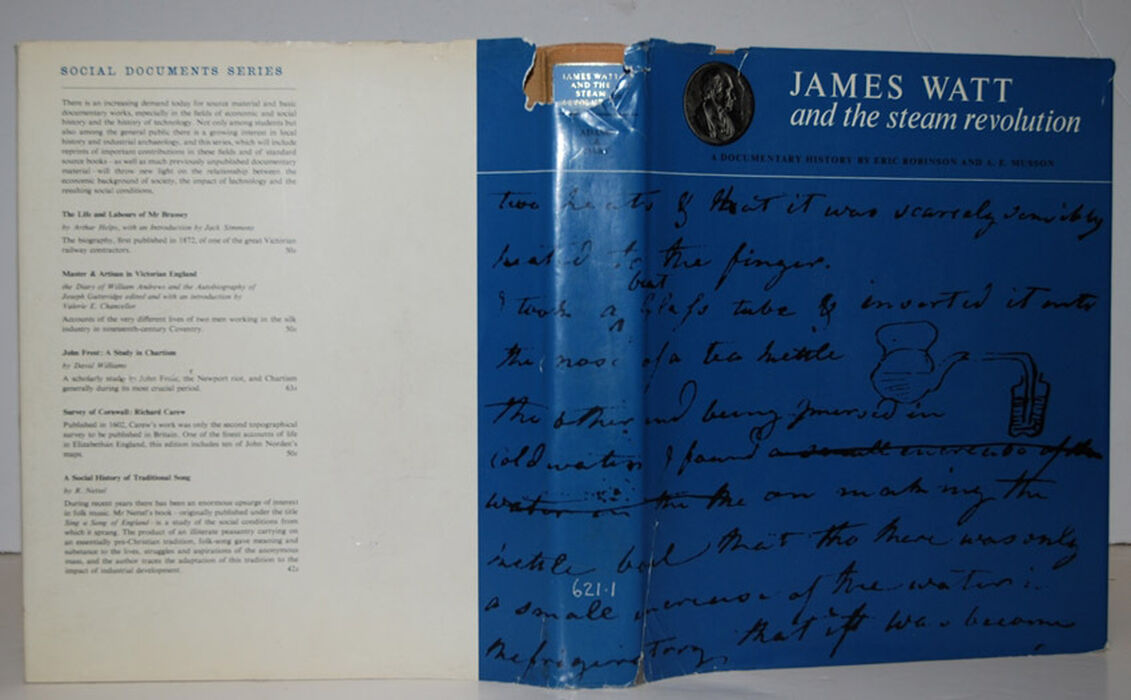 SOCIAL DOCUMENTS SERIES
There is an increasing demand today for source material and basic
documentary works, especially in the fields of economic and social
history and the history of technology. Not only among students but
also among the general public there is a growing interest in local
history and industrial archaeology, and this series, which will include
reprints of important contributions in these fields and of standard
source books – as well as much previously unpublished documentary
material – will throw new light on the relationship between the
economic background of society, the impact of technology and the
resulting social conditions.
The Life and Labours of Mr Brassey
by Arthur Helps, with an Introduction by Jack Simmons
The biography, first published in 1872, of one of the great Victorian
railway contractors. 50s
Master & Artisan in Victorian England
the Diary of William Andrews and the Autobiography of
Joseph Gutteridge edited and with an introduction by
Valerie E. Chancellor
Accounts of the very different lives of two men working in the silk
industry in nineteenth-century Coventry. 50s
John Frost: A Study in Chartism
by David Williams
A scholarly study by John Frost, the Newport riot, and Chartism
generally during its most crucial period. 63s
Survey of Cornwall: Richard Carew
Published in 1602, Carew's work was only the second topographical
survey to be published in Britain. One of the finest accounts of life
in Elizabethan England, this edition includes ten of John Norden's
maps. 50s
A Social History of Traditional Song
by R. Nettel
During recent years there has been an enormous upsurge of interest
in folk music. Mr Nettel's book – originally published under the title
Sing a Song of England – is a study of the social conditions from
which it sprang. The product of an illiterate peasantry carrying on
an essentially pre-Christian tradition, folk-song gave meaning and
substance to the lives, struggles and aspirations of the anonymous
mass, and the author traces the adaptation of this tradition to the
impact of industrial development. 42s
JAMES WATT
AND THE
STEAM
621·1
JAMES WATT
and the steam revolution
A DOCUMENTARY HISTORY BY ERIC ROBINSON AND A. E. MUSSON
two heats & that it was scarcely sensibly
heated to the finger.
but
I took a Glass tube & inserted it into
the nose of a tea kettle
the other end being Immersed in
cold water I found a small increase of the
water in the the on making the
kettle boil that tho there was only
a small increase of the water in
the refrigeratory, that it was become